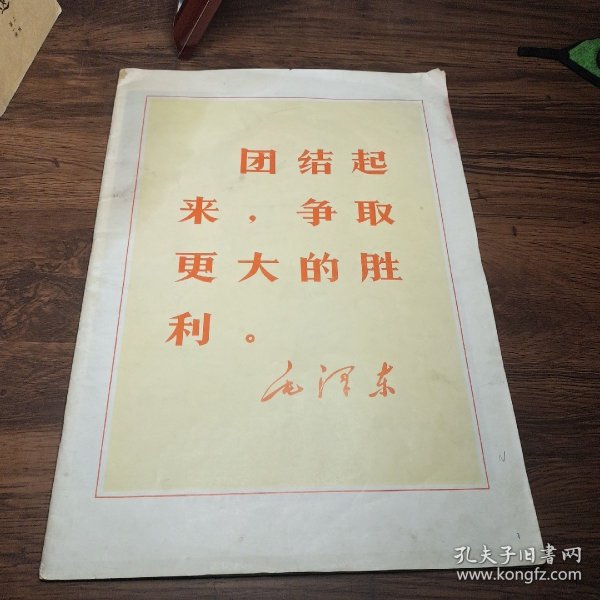 团结起
来，争取
更大的胜
利。
毛泽东
孔夫子旧书网
www.kongfz.com